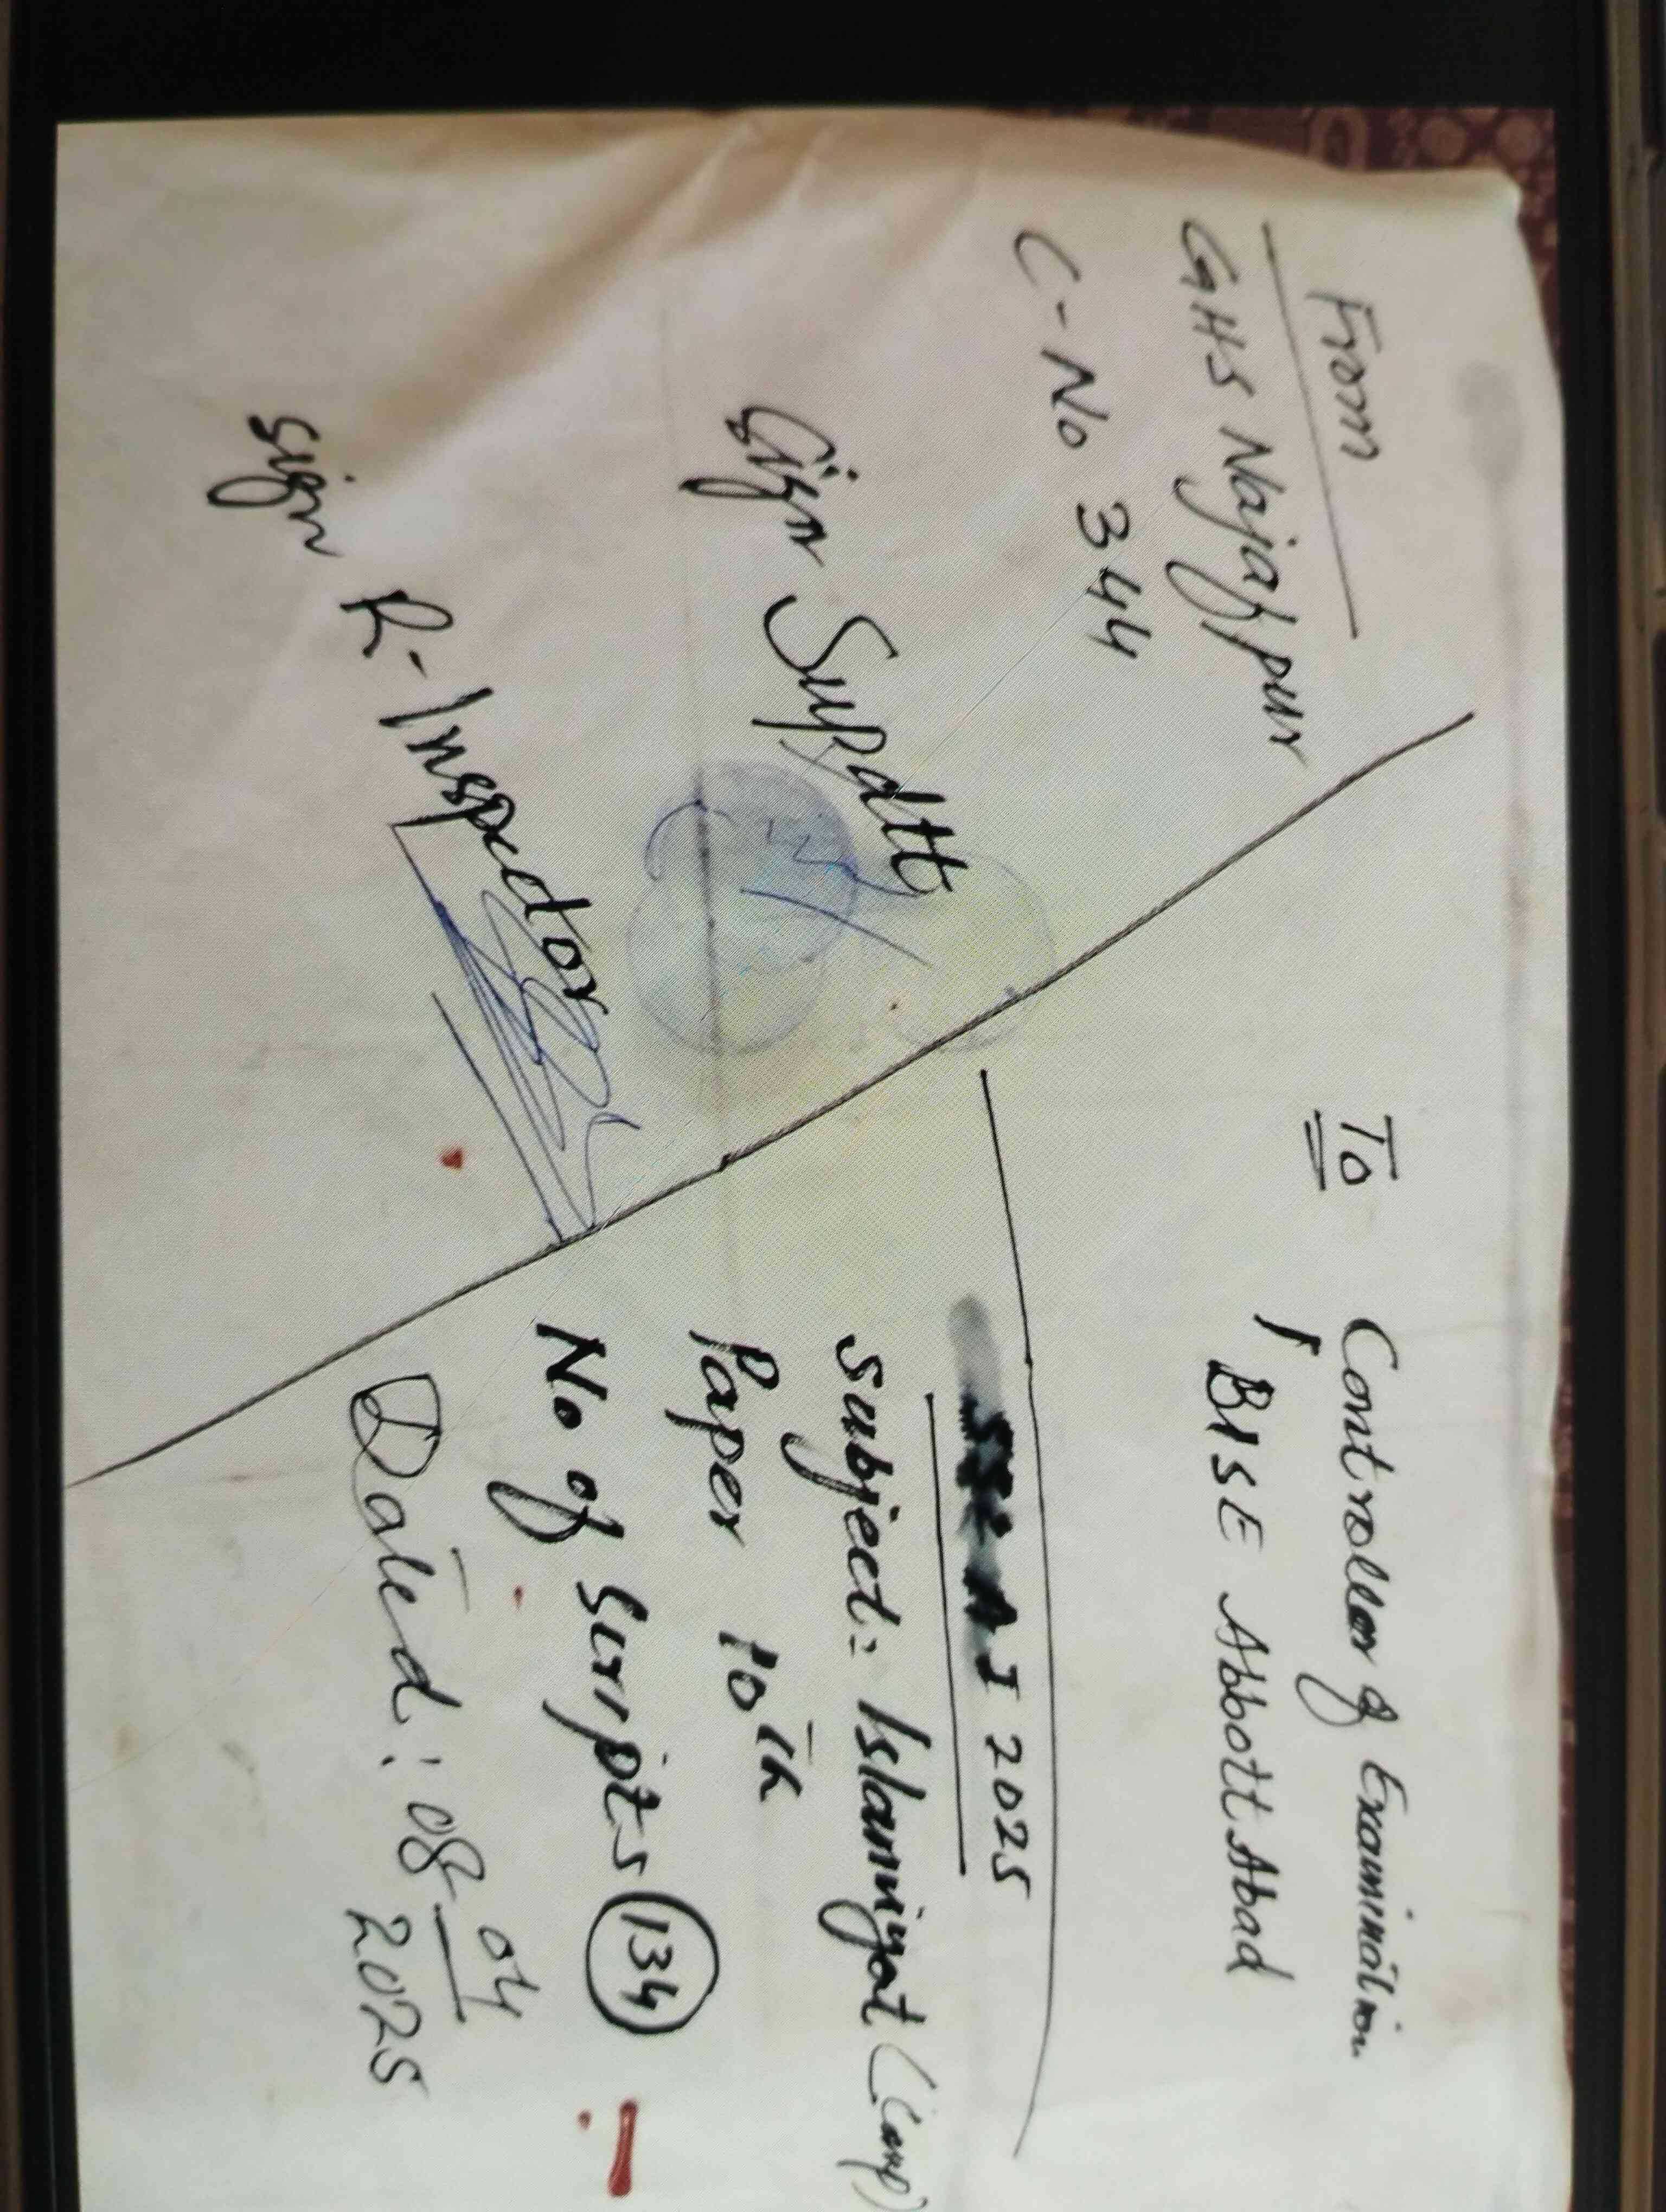 From
GHS Najafpur
C-No 344
Sign Supdtt
Sign R-Inspector
To
Controller of Examination
BISE Abbott Abad
SSC A I 2025
Subject: Islamiyat (Comp)
Paper 10th
No of Scripts 134
Dated: 08 04 2025